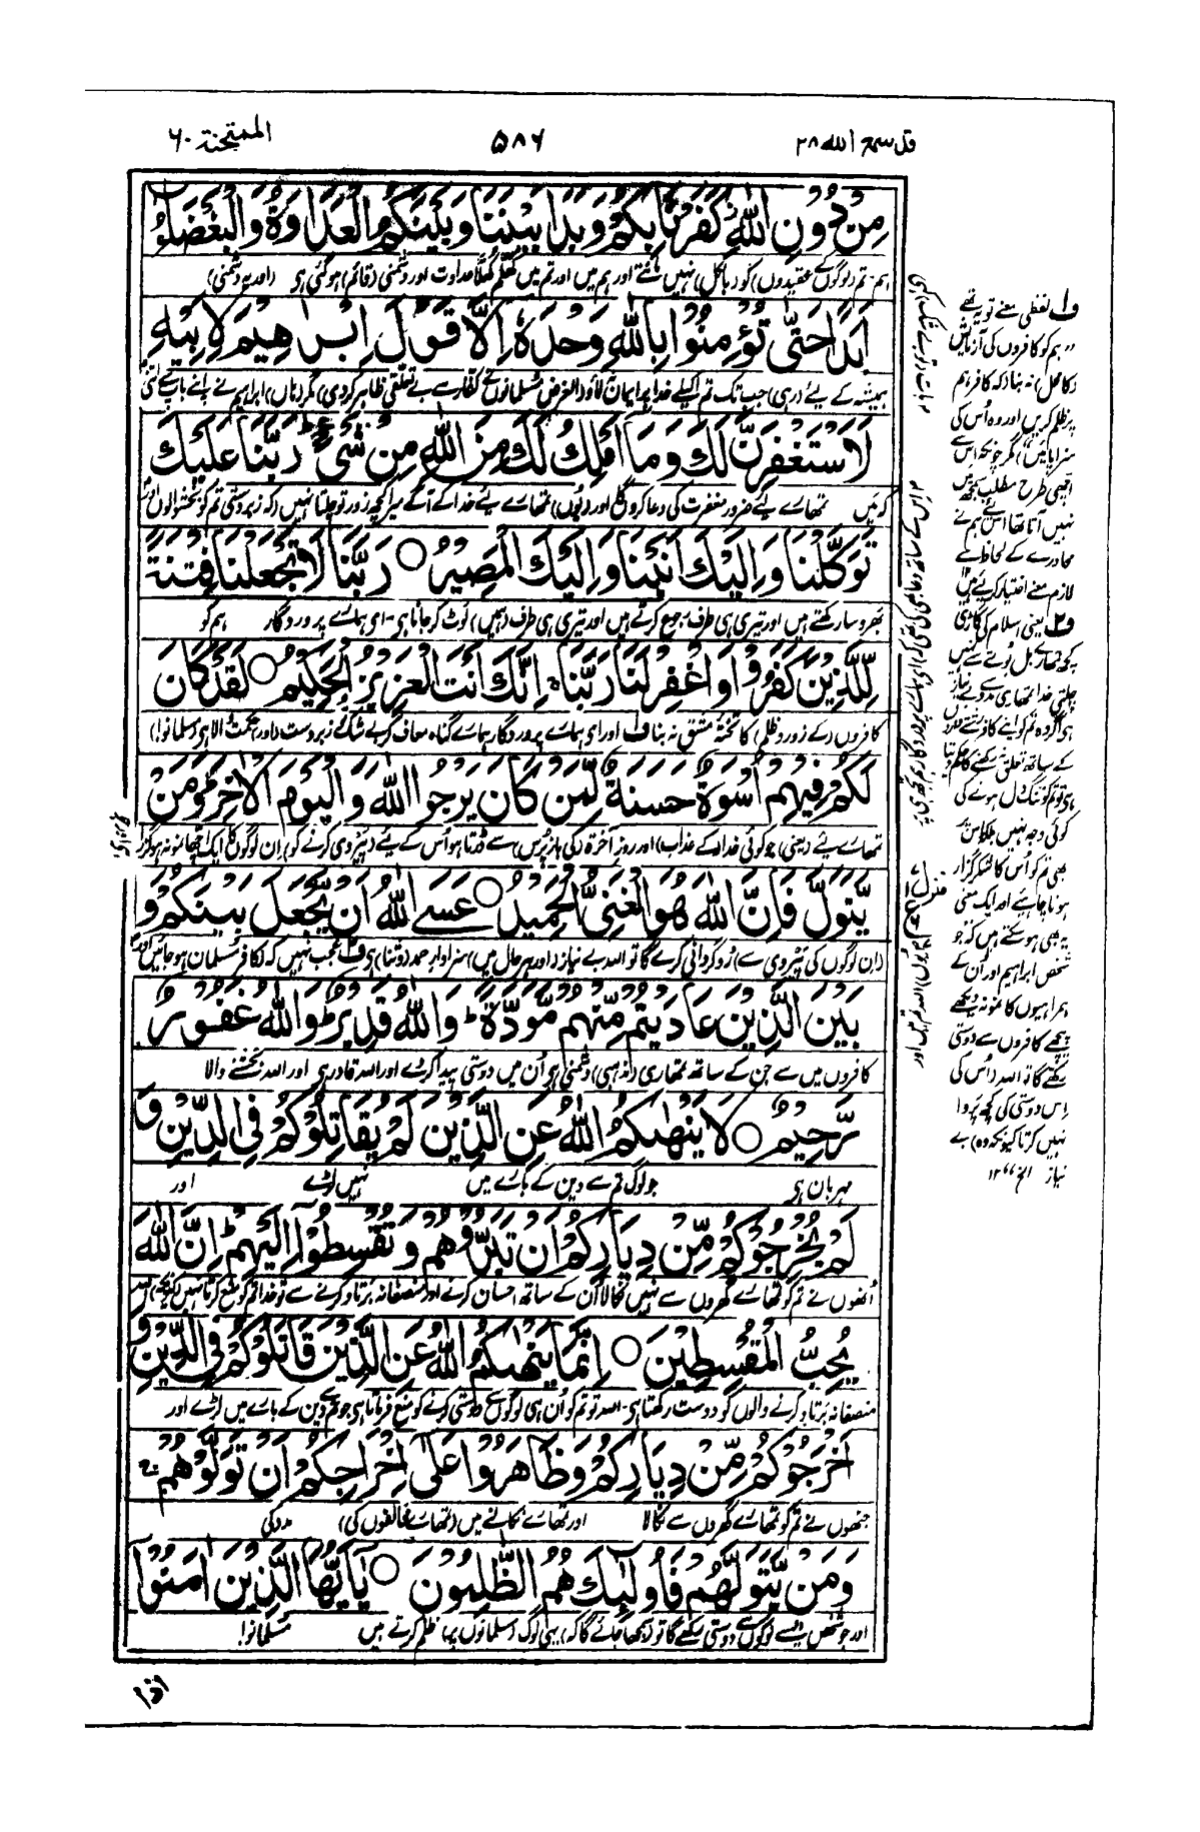 قد سمع الله ۲۸
۵۸۶
الممتحنة ۶۰
مِنْ دُوْنِ اللّٰهِ كَفَرْنَا بِكُمْ وَبَدَا بَيْنَنَا وَبَيْنَكُمُ الْعَدَاوَةُ وَالْبَغْضَآءُ
ہم تم (لوگوں کے عقیدوں) کو (بالکل) نہیں مانتے اور ہم میں اور تم میں کھلم کھلا عداوت اور دشمنی (قائم) ہو گئی ہی (اور یہ دشمنی)
اَبَدًا حَتّٰى تُؤْمِنُوْا بِاللّٰهِ وَحْدَهٗۤ اِلَّا قَوْلَ اِبْرٰهِيْمَ لِاَبِيْهِ
ہمیشہ کے لیے (رہی) جب تک تم اکیلے خدا پر ایمان لاؤ (الغرض مسلمانوں نے کفار سے بے تعلقی ظاہر کر دی) مگر (ہاں) ابراہیم نے اپنے باپ سے اتنی
لَاَسْتَغْفِرَنَّ لَكَ وَمَاۤ اَمْلِكُ لَكَ مِنَ اللّٰهِ مِنْ شَيْءٍ ؕ رَبَّنَا عَلَيْكَ
کہ میں تمھارے لیے ضرور مغفرت کی دعا کروں گا اور (یوں) تمھارے لیے خدا کے آگے میرا کچھ زور تو چلتا نہیں (کہ زبردستی تم کو بخشوا لوں)
تَوَكَّلْنَا وَاِلَيْكَ اَنَبْنَا وَاِلَيْكَ الْمَصِيْرُ ○ رَبَّنَا لَا تَجْعَلْنَا فِتْنَةً
بھروسا رکھتے ہیں اور تیری ہی طرف رجوع کرتے ہیں اور تیری ہی طرف (ہمیں) لوٹ کر جانا ہی۔ ای ہمارے پروردگار ہم کو
لِّلَّذِيْنَ كَفَرُوْا وَاغْفِرْ لَنَا رَبَّنَا ۚ اِنَّكَ اَنْتَ الْعَزِيْزُ الْحَكِيْمُ ○ لَقَدْ كَانَ
کافروں (کے زور و ظلم) کا تختۂ مشق نہ بنا ف۱ اور ای ہمارے پروردگار ہمارے گناہ معاف کر بے شک تو زبردست (اور) حکمت والا ہی (مسلمانو!)
لَكُمْ فِيْهِمْ اُسْوَةٌ حَسَنَةٌ لِّمَنْ كَانَ يَرْجُوا اللّٰهَ وَالْيَوْمَ الْاٰخِرَ ؕ وَمَنْ
تمھارے لیے (یعنی) جو کوئی خدا (کے عذاب) اور روزِ آخرۃ (کی باز پرس) سے ڈرتا ہو اُس کے لیے (پیروی کرنے کو) اِن لوگوں کا ایک اچھا نمونہ ہو گزرا
يَّتَوَلَّ فَاِنَّ اللّٰهَ هُوَ الْغَنِيُّ الْحَمِيْدُ ○ عَسَى اللّٰهُ اَنْ يَّجْعَلَ بَيْنَكُمْ وَ
(ان لوگوں کی پیروی سے) رُوگردانی کرے گا تو اللہ بے نیاز (اور ہر حال میں) سزاوارِ حمد (و ثنا) ہی ف۲ عجب نہیں کہ (کافر مسلمان ہو جائیں اور)
بَيْنَ الَّذِيْنَ عَادَيْتُمْ مِّنْهُمْ مَّوَدَّةً ؕ وَاللّٰهُ قَدِيْرٌ ؕ وَاللّٰهُ غَفُوْرٌ
کافروں میں سے جن کے ساتھ تمھاری دشمنی ہو اُن میں دوستی پیدا کر دے اور اللہ قادر ہی اور اللہ بخشنے والا
رَّحِيْمٌ ○ لَا يَنْهٰىكُمُ اللّٰهُ عَنِ الَّذِيْنَ لَمْ يُقَاتِلُوْكُمْ فِى الدِّيْنِ وَ
مہربان ہی جو لوگ تم سے دین کے بارے میں نہیں لڑے اور
لَمْ يُخْرِجُوْكُمْ مِّنْ دِيَارِكُمْ اَنْ تَبَرُّوْهُمْ وَتُقْسِطُوْۤا اِلَيْهِمْ ؕ اِنَّ اللّٰهَ
اُنھوں نے تم کو تمھارے گھروں سے نہیں نکالا اُن کے ساتھ احسان کرنے اور منصفانہ برتاو کرنے سے تو خدا تم کو منع کرتا نہیں (کیونکہ) اللہ
يُحِبُّ الْمُقْسِطِيْنَ ○ اِنَّمَا يَنْهٰىكُمُ اللّٰهُ عَنِ الَّذِيْنَ قَاتَلُوْكُمْ فِى الدِّيْنِ وَ
منصفانہ برتاو کرنے والوں کو دوست رکھتا ہی۔ اللہ تو تم کو اُن ہی لوگوں سے دوستی کرنے کو منع فرماتا ہی جو تم سے دین کے بارے میں لڑے اور
اَخْرَجُوْكُمْ مِّنْ دِيَارِكُمْ وَظَاهَرُوْا عَلٰۤى اِخْرَاجِكُمْ اَنْ تَوَلَّوْهُمْ ۚ
جنھوں نے تم کو تمھارے گھروں سے نکالا اور تمھارے نکالنے میں (تمھارے مخالفوں کی) مدد کی
وَمَنْ يَّتَوَلَّهُمْ فَاُولٰٓئِكَ هُمُ الظّٰلِمُوْنَ ○ يٰۤاَيُّهَا الَّذِيْنَ اٰمَنُوْۤا
اور جو شخص ایسے لوگوں سے دوستی رکھے گا تو (سمجھا جائے گا کہ) یہی لوگ (مسلمانوں پر) ظلم کرتے ہیں مسلمانو!
اذا
ف۱ لفظی معنے تو یہ تھے
"ہم کو کافروں کی آزمایش
(کا محل) نہ بنا (کہ کافر ہم
پر ظلم کریں اور وہ اُس کی
سزا پائیں)" مگر چونکہ اس سے
اچھی طرح مطلب سمجھ میں
نہیں آتا تھا اس لیے ہم نے
محاورے کے لحاظ سے
لازم معنے اختیار کیے ہیں
ف۲ یعنی اسلام کی گاڑی
کچھ تمھارے بل بوتے سے نہیں
چلتی خدا تمھاری مدد سے بے نیاز
ہی اگر وہ تم کو اپنے کافر رشتے داروں
کے ساتھ تعلق رکھنے کا حکم دیتا
ہی تو تم کو تنگ دل ہونے کی
کوئی وجہ نہیں بلکہ اس پر
بھی تم کو اُس کا شکر گزار
ہونا چاہیے اور ایک معنی
یہ بھی ہو سکتے ہیں کہ جو
شخص ابراہیم اور اُن کے
ہمراہیوں کا نمونہ دیکھے
پیچھے کافروں سے دوستی
رکھے گا تو اللہ (اُس کی
اِس دوستی کی کچھ پروا
نہیں کرتا کیونکہ وہ) بے
نیاز الخ" ۱۲
منزل ۷